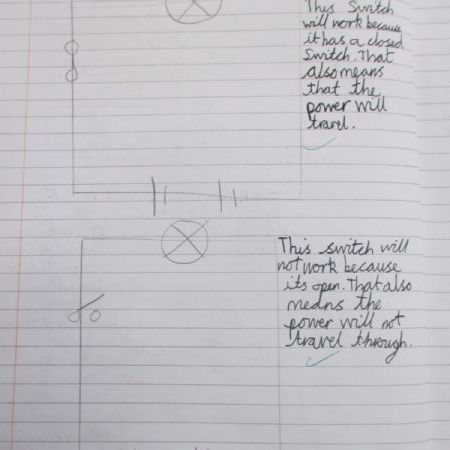 This Switch
will work because
it has a closed
Switch. That
also means
that the
power will
travel.
This switch will
not work because
its open. That also
means the
power will not
travel through.